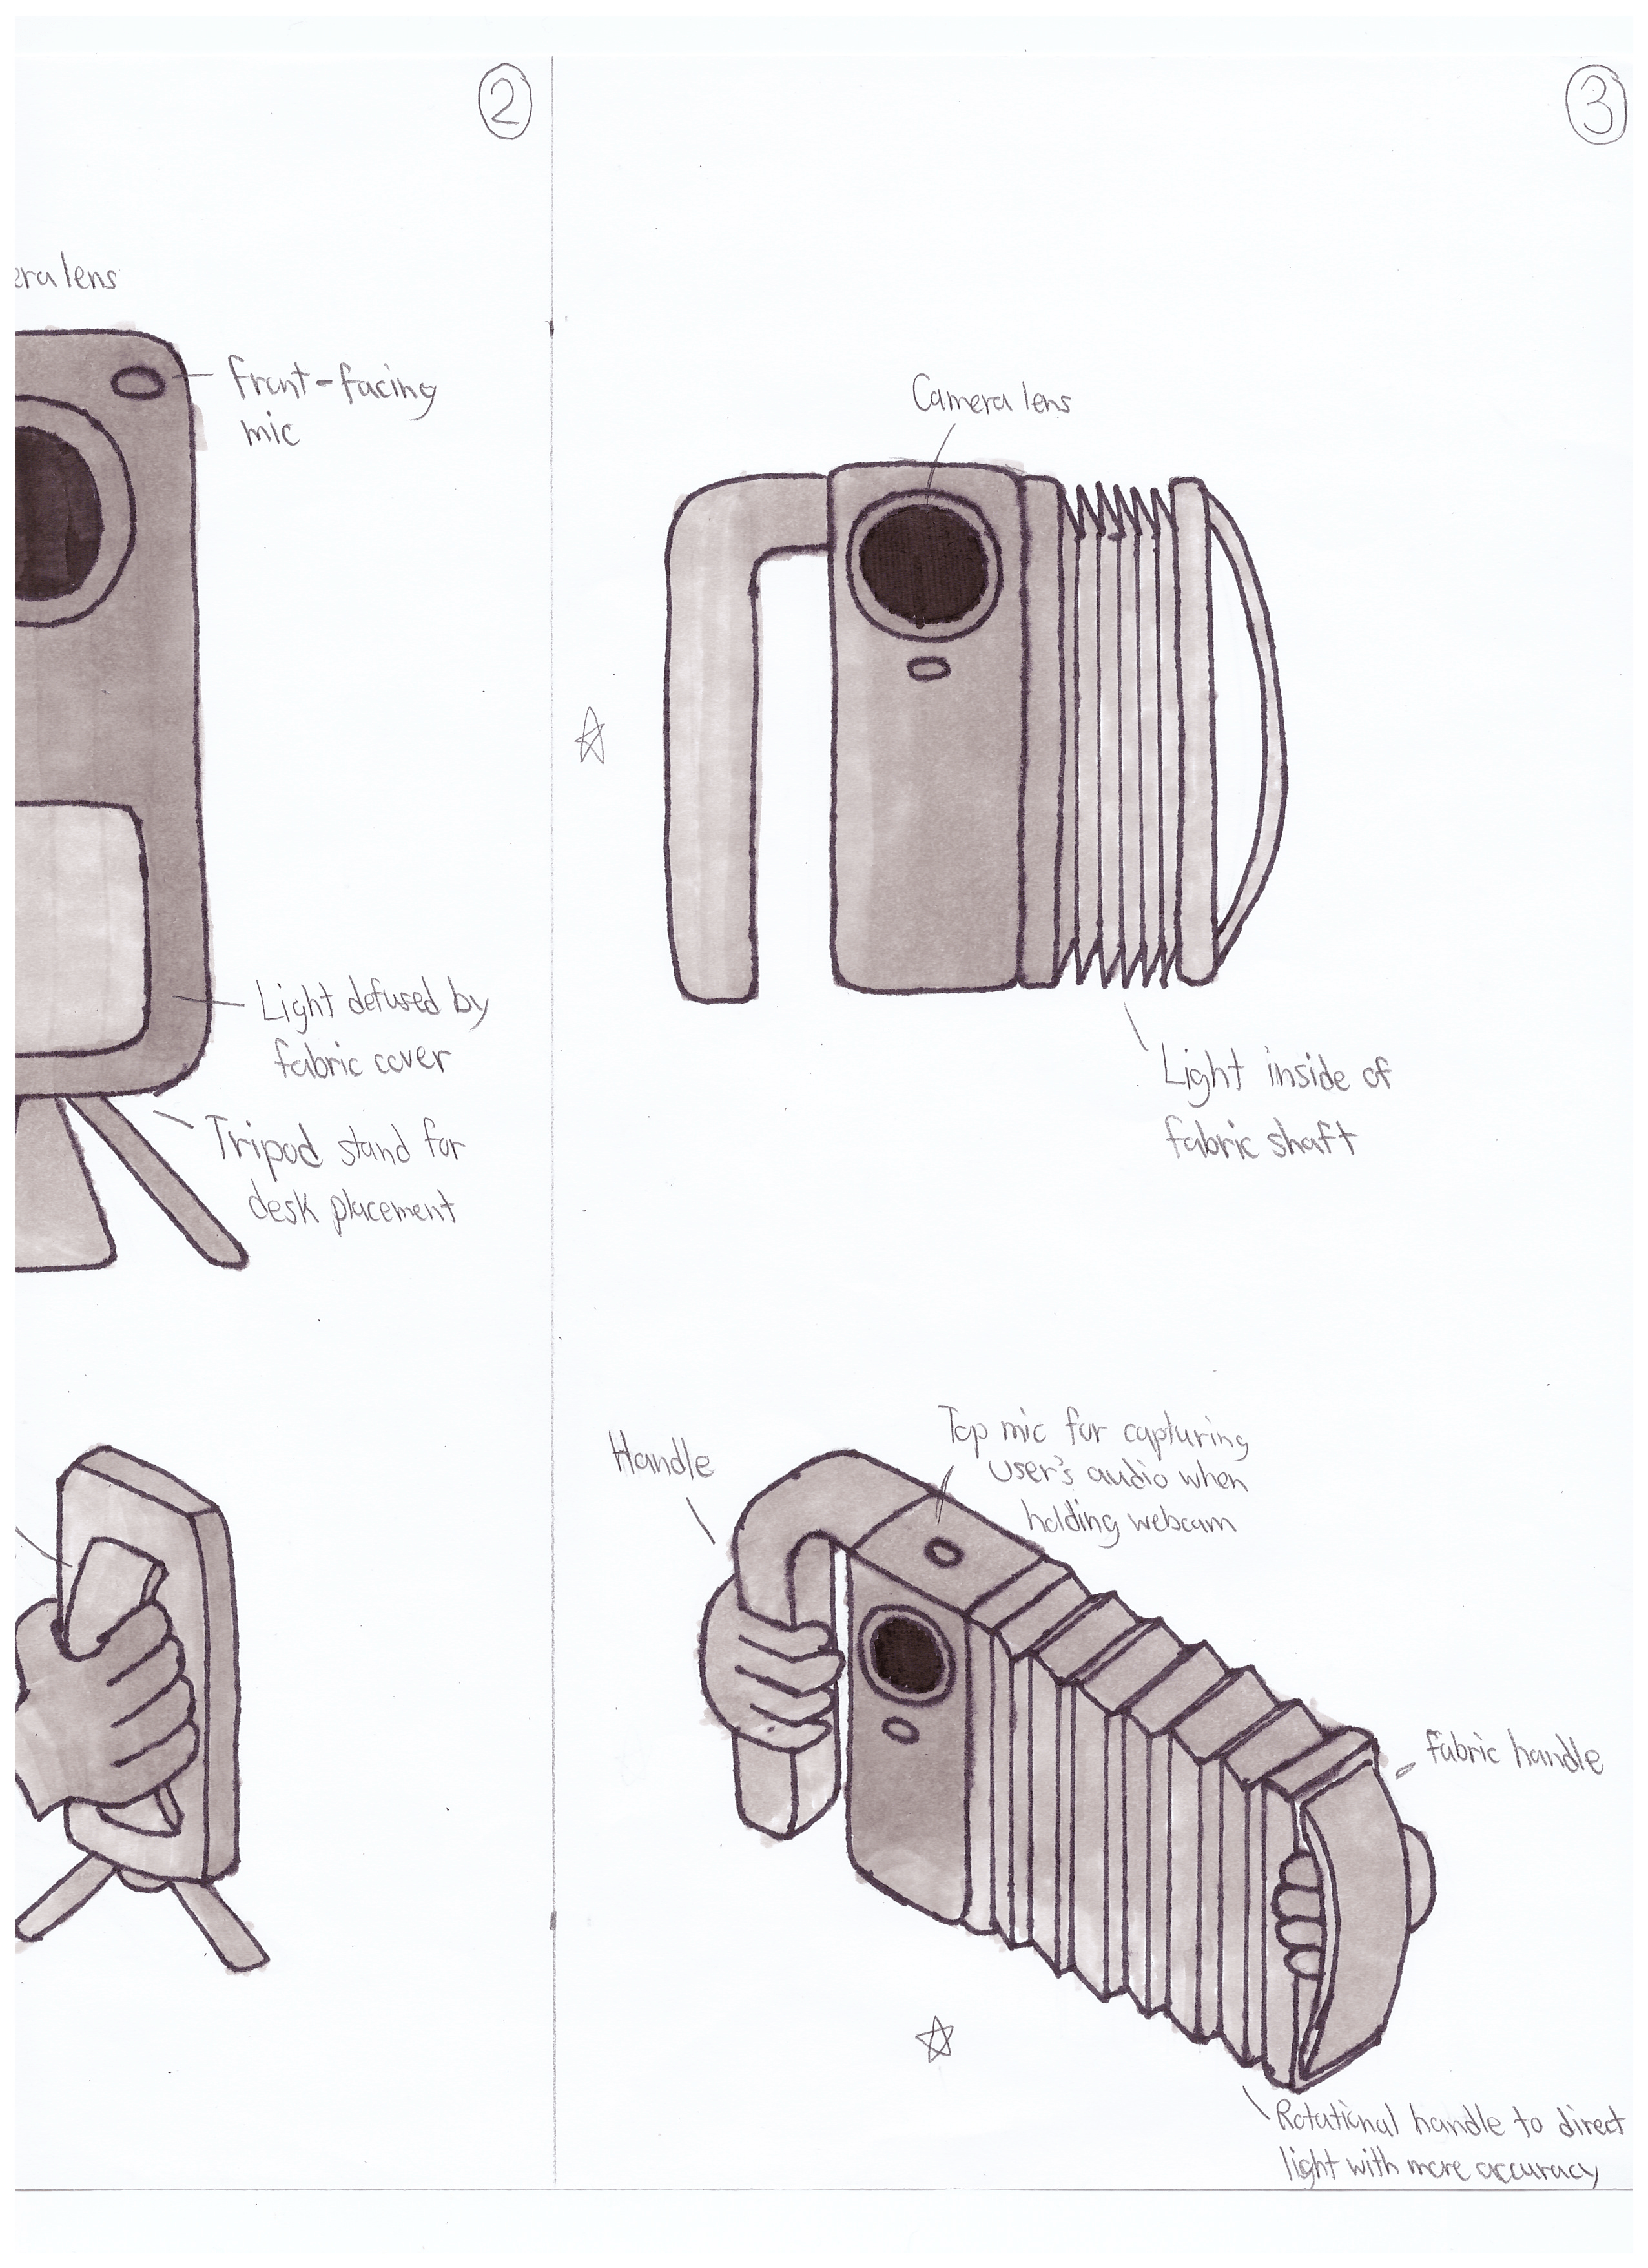 2
3
era lens
front-facing
mic
Light defused by
fabric cover
Tripod stand for
desk placement
Camera lens
Light inside of
fabric shaft
Handle
Top mic for capturing
user's audio when
holding webcam
fabric handle
Rotational handle to direct
light with more accuracy